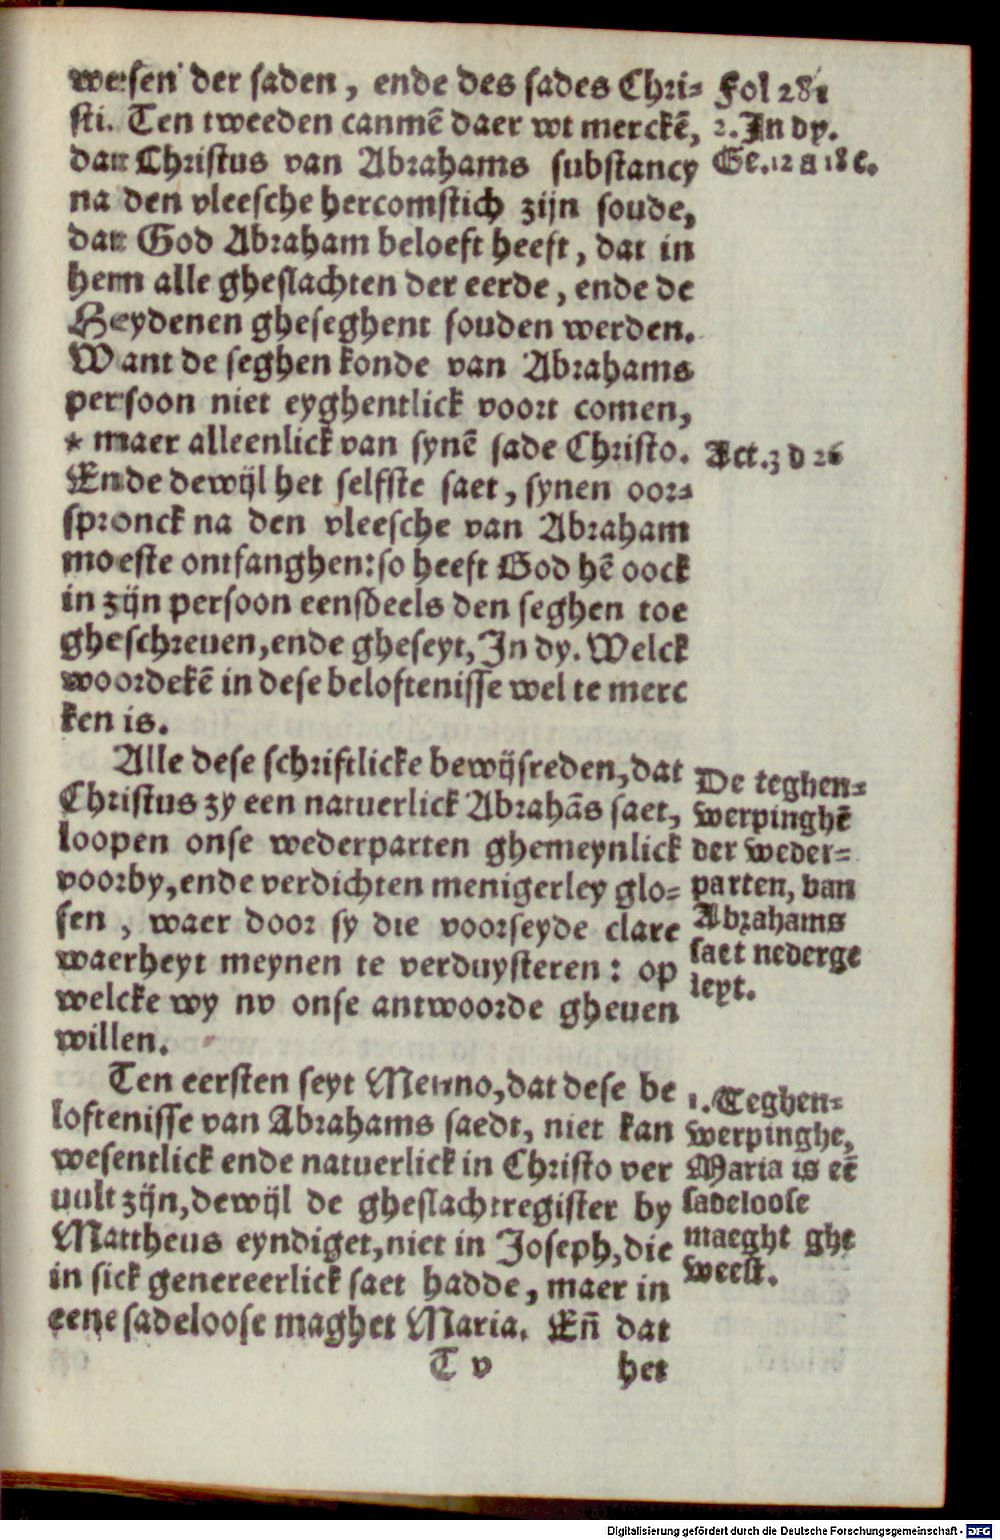 wesen der saden, ende des sades Chri-
sti. Ten tweeden canmē daer wt merckē,
dat Christus van Abrahams substancy
na den vleesche hercomstich zijn soude,
dat God Abraham beloeft heeft, dat in
hem alle gheslachten der eerde, ende de
Heydenen gheseghent souden werden.
Want de seghen konde van Abrahams
persoon niet eyghentlick voort comen,
* maer alleenlick van synē sade Christo.
Ende dewijl het selfste saet, synen oor-
spronck na den vleesche van Abraham
moeste ontfanghen: so heeft God hē oock
in zijn persoon eensdeels den seghen toe
gheschreuen, ende gheseyt, In dy. Welck
woordekē in dese beloftenisse wel te merc
ken is.
Alle dese schriftlicke bewijsreden, dat
Christus zy een natuerlick Abrahās saet,
loopen onse wederparten ghemeynlick
voorby, ende verdichten menigerley glo-
sen, waer door sy die voorseyde clare
waerheyt meynen te verduysteren: op
welcke wy nv onse antwoorde gheuen
willen.
Ten eersten seyt Menno, dat dese be
loftenisse van Abrahams saedt, niet kan
wesentlick ende natuerlick in Christo ver
uult zijn, dewijl de gheslachtregister by
Mattheus eyndiget, niet in Joseph, die
in sick genereerlick saet hadde, maer in
eene sadeloose maghet Maria. Eñ dat
T v het
Fol 281
2. In dy.
Ge. 12 a 18 c.
Act. 3 d 26
De teghen-
werpinghē
der weder-
parten, van
Abrahams
saet nederge
leyt.
1. Teghen-
werpinghe,
Maria is eē
sadeloose
maeght ghe
weest.
Digitalisierung gefördert durch die Deutsche Forschungsgemeinschaft - DFG